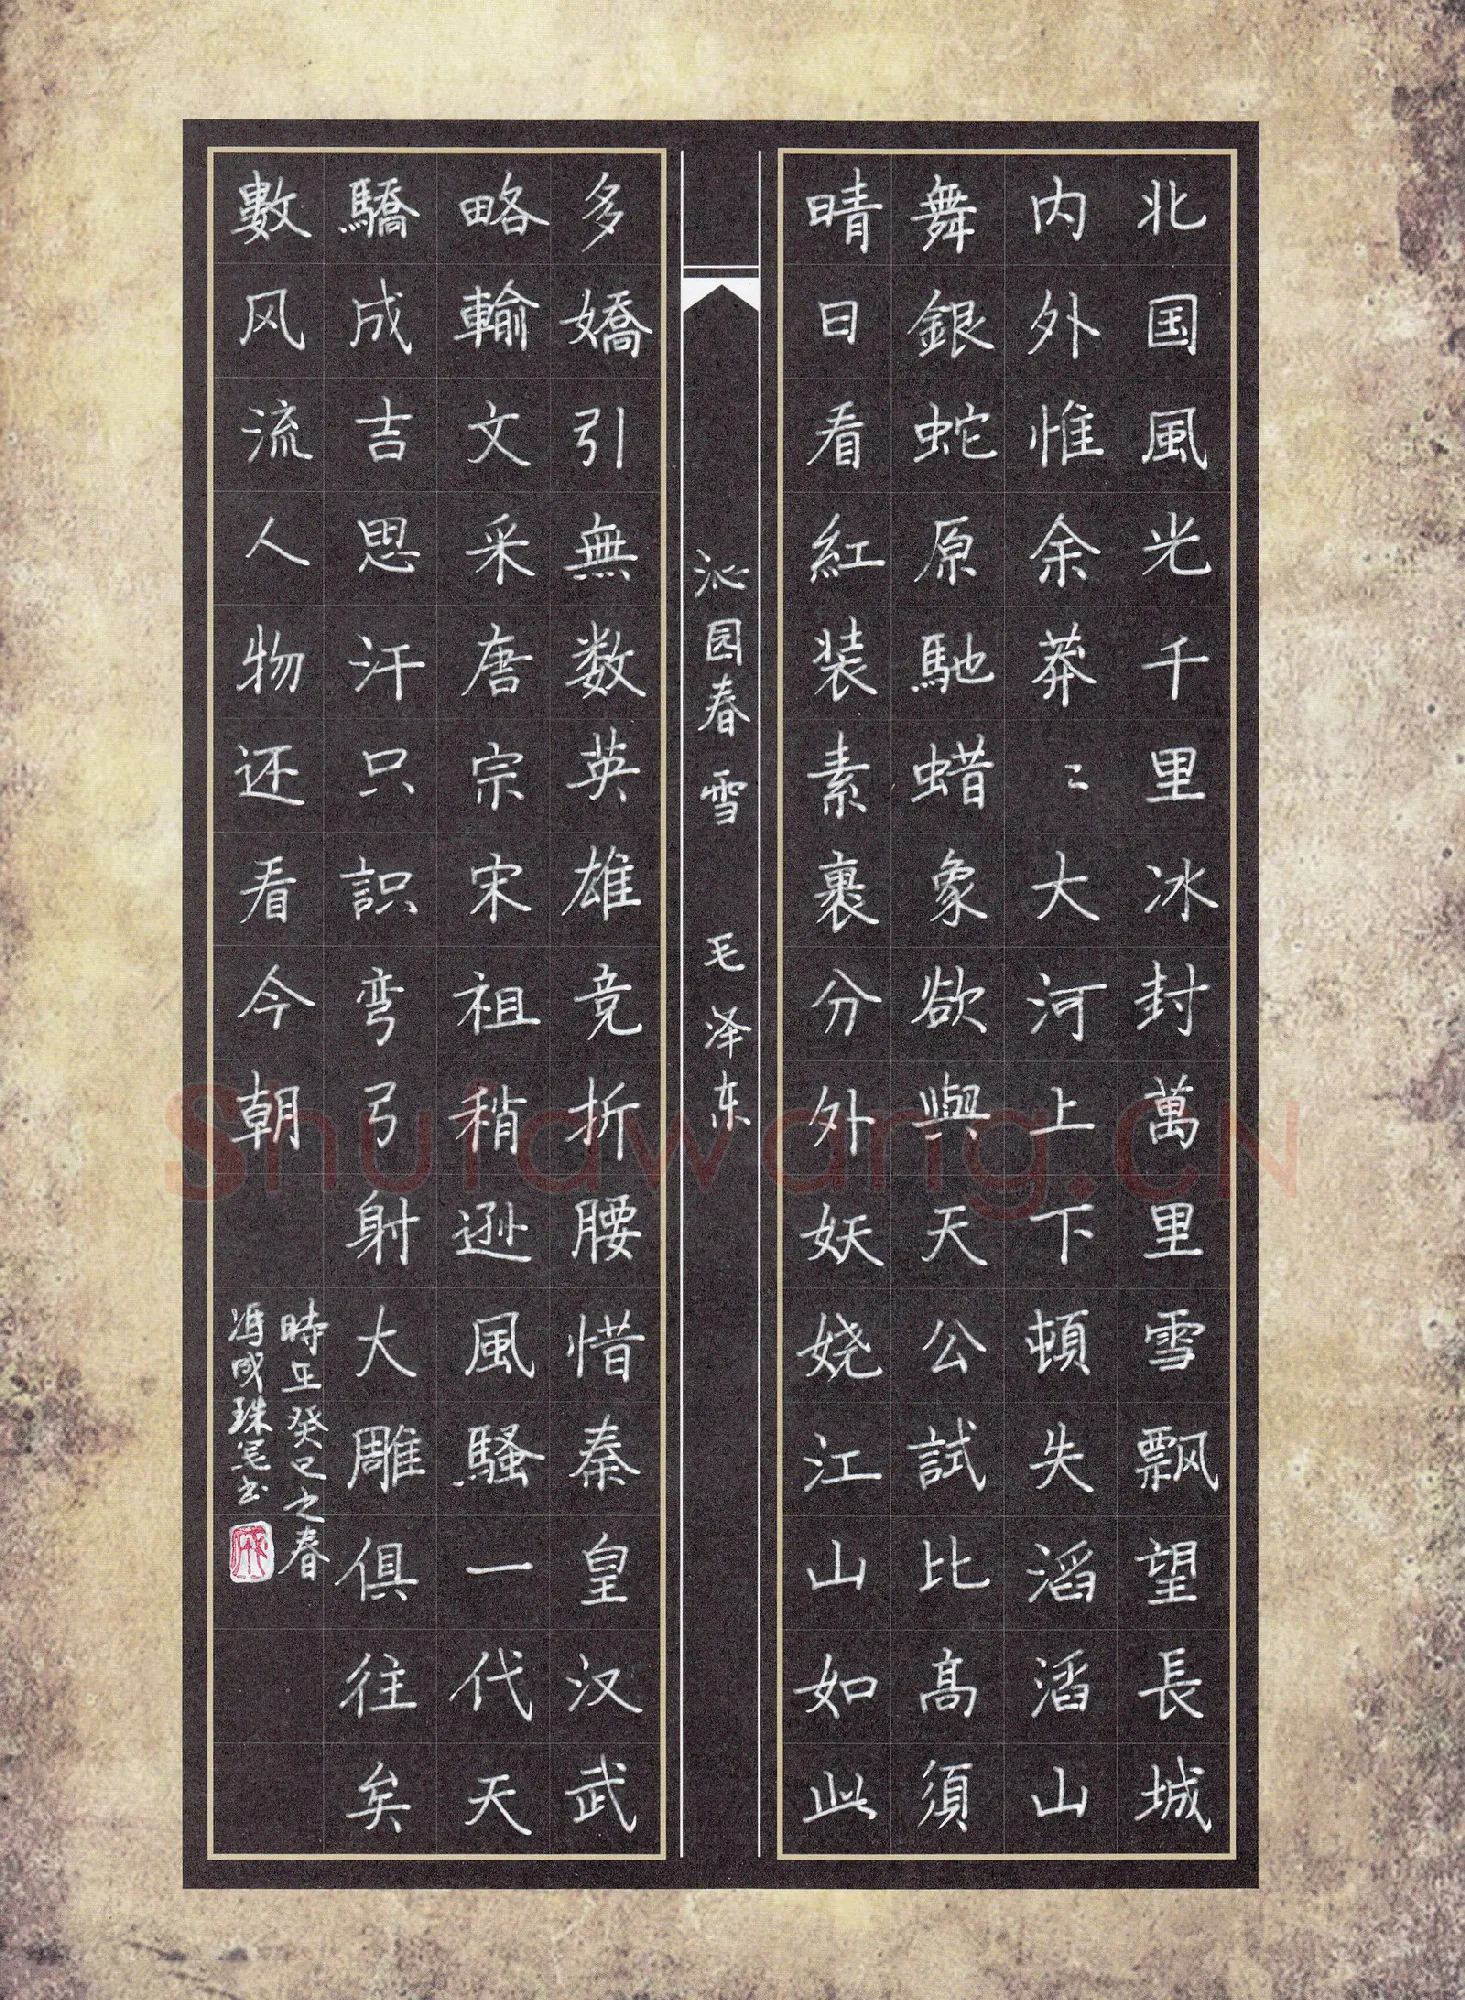 北国風光千里冰封萬里雪飄望長城
内外惟余莽〻大河上下頓失滔滔山
舞銀蛇原馳蜡象欲與天公試比高須
晴日看紅装素裹分外妖娆江山如此
沁园春 雪 毛泽东
多嬌引無数英雄竞折腰惜秦皇汉武
略輸文采唐宗宋祖稍逊風騷一代天
驕成吉思汗只識弯弓射大雕俱往矣
數风流人物还看今朝
時在癸巳之春
冯成珠写书
Shufawang.CN